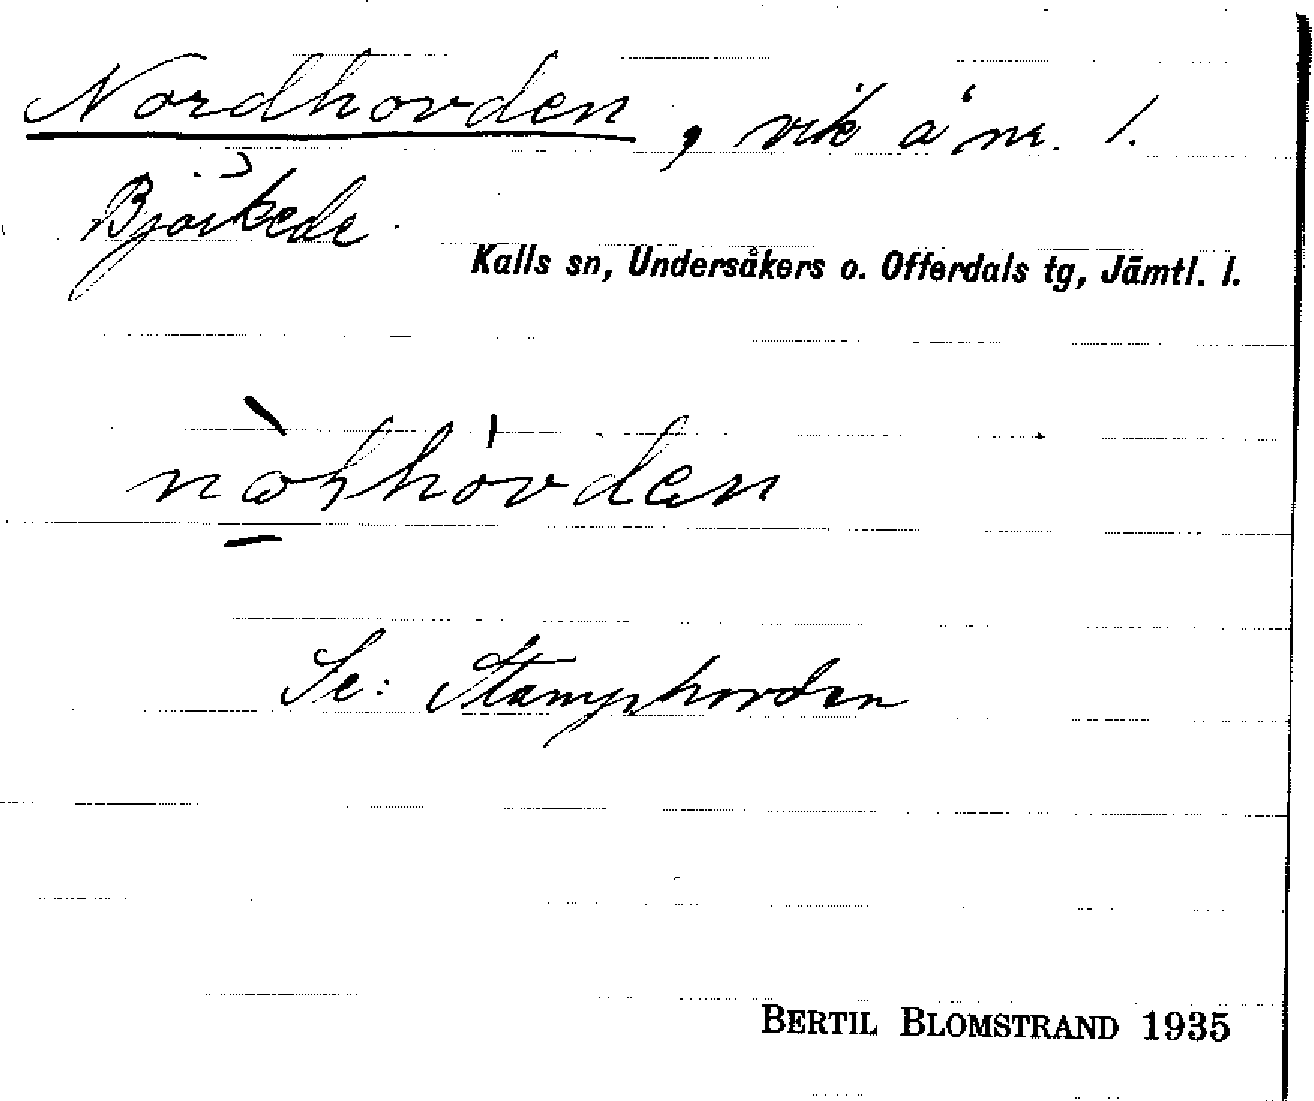 Nordhovden, vik å nr. 1.
Björkede
Kalls sn, Undersåkers o. Offerdals tg, Jämtl. l.
Se: Stamphovden
BERTIL BLOMSTRAND 1935